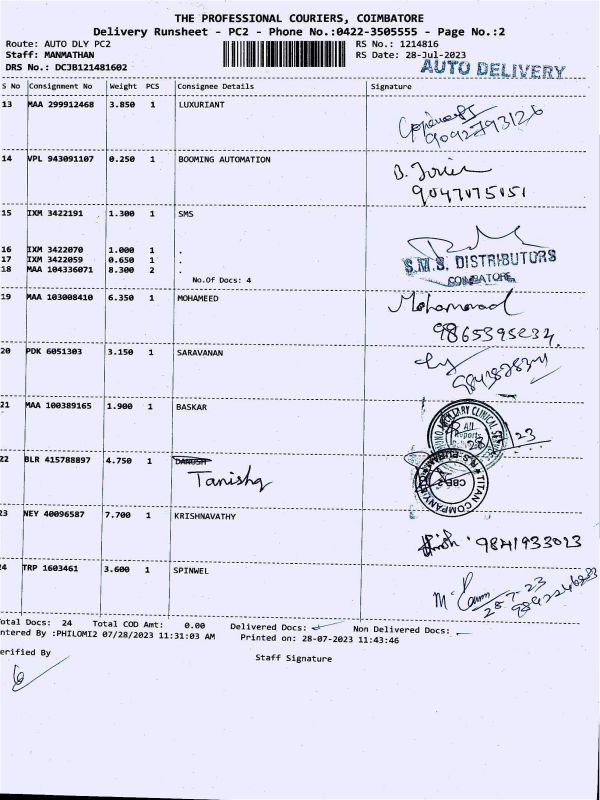 THE PROFESSIONAL COURIERS, COIMBATORE
Delivery Runsheet - PC2 - Phone No.:0422-3505555 - Page No.:2
Route: AUTO DLY PC2 RS No.: 1214816
Staff: MANMATHAN RS Date: 28-Jul-2023
DRS No.: DCJB121481602 AUTO DELIVERY
S No Consignment No Weight PCS Consignee Details Signature
13 MAA 299912468 3.850 1 LUXURIANT
9092793126
14 VPL 943091107 0.250 1 BOOMING AUTOMATION
9047075151
15 IXM 3422191 1.300 1 SMS
16 IXM 3422070 1.000 1 .
17 IXM 3422059 0.650 1 .
18 MAA 104336071 8.300 2 .
No.Of Docs: 4
S.M.S. DISTRIBUTORS
COIMBATORE
19 MAA 103008410 6.350 1 MOHAMEED
Mohammad
20 PDK 6051303 3.150 1 SARAVANAN
21 MAA 100389165 1.900 1 BASKAR
23
22 BLR 415788897 4.750 1 DARUSH
Tanishq
TITAN COMPANY
23 NEY 40096587 7.700 1 KRISHNAVATHY
9841933023
24 TRP 1603461 3.600 1 SPINWEL
28-7-23
Total Docs: 24 Total COD Amt: 0.00 Delivered Docs: Non Delivered Docs:
ntered By :PHILOMI2 07/28/2023 11:31:03 AM Printed on: 28-07-2023 11:43:46
erified By
Staff Signature